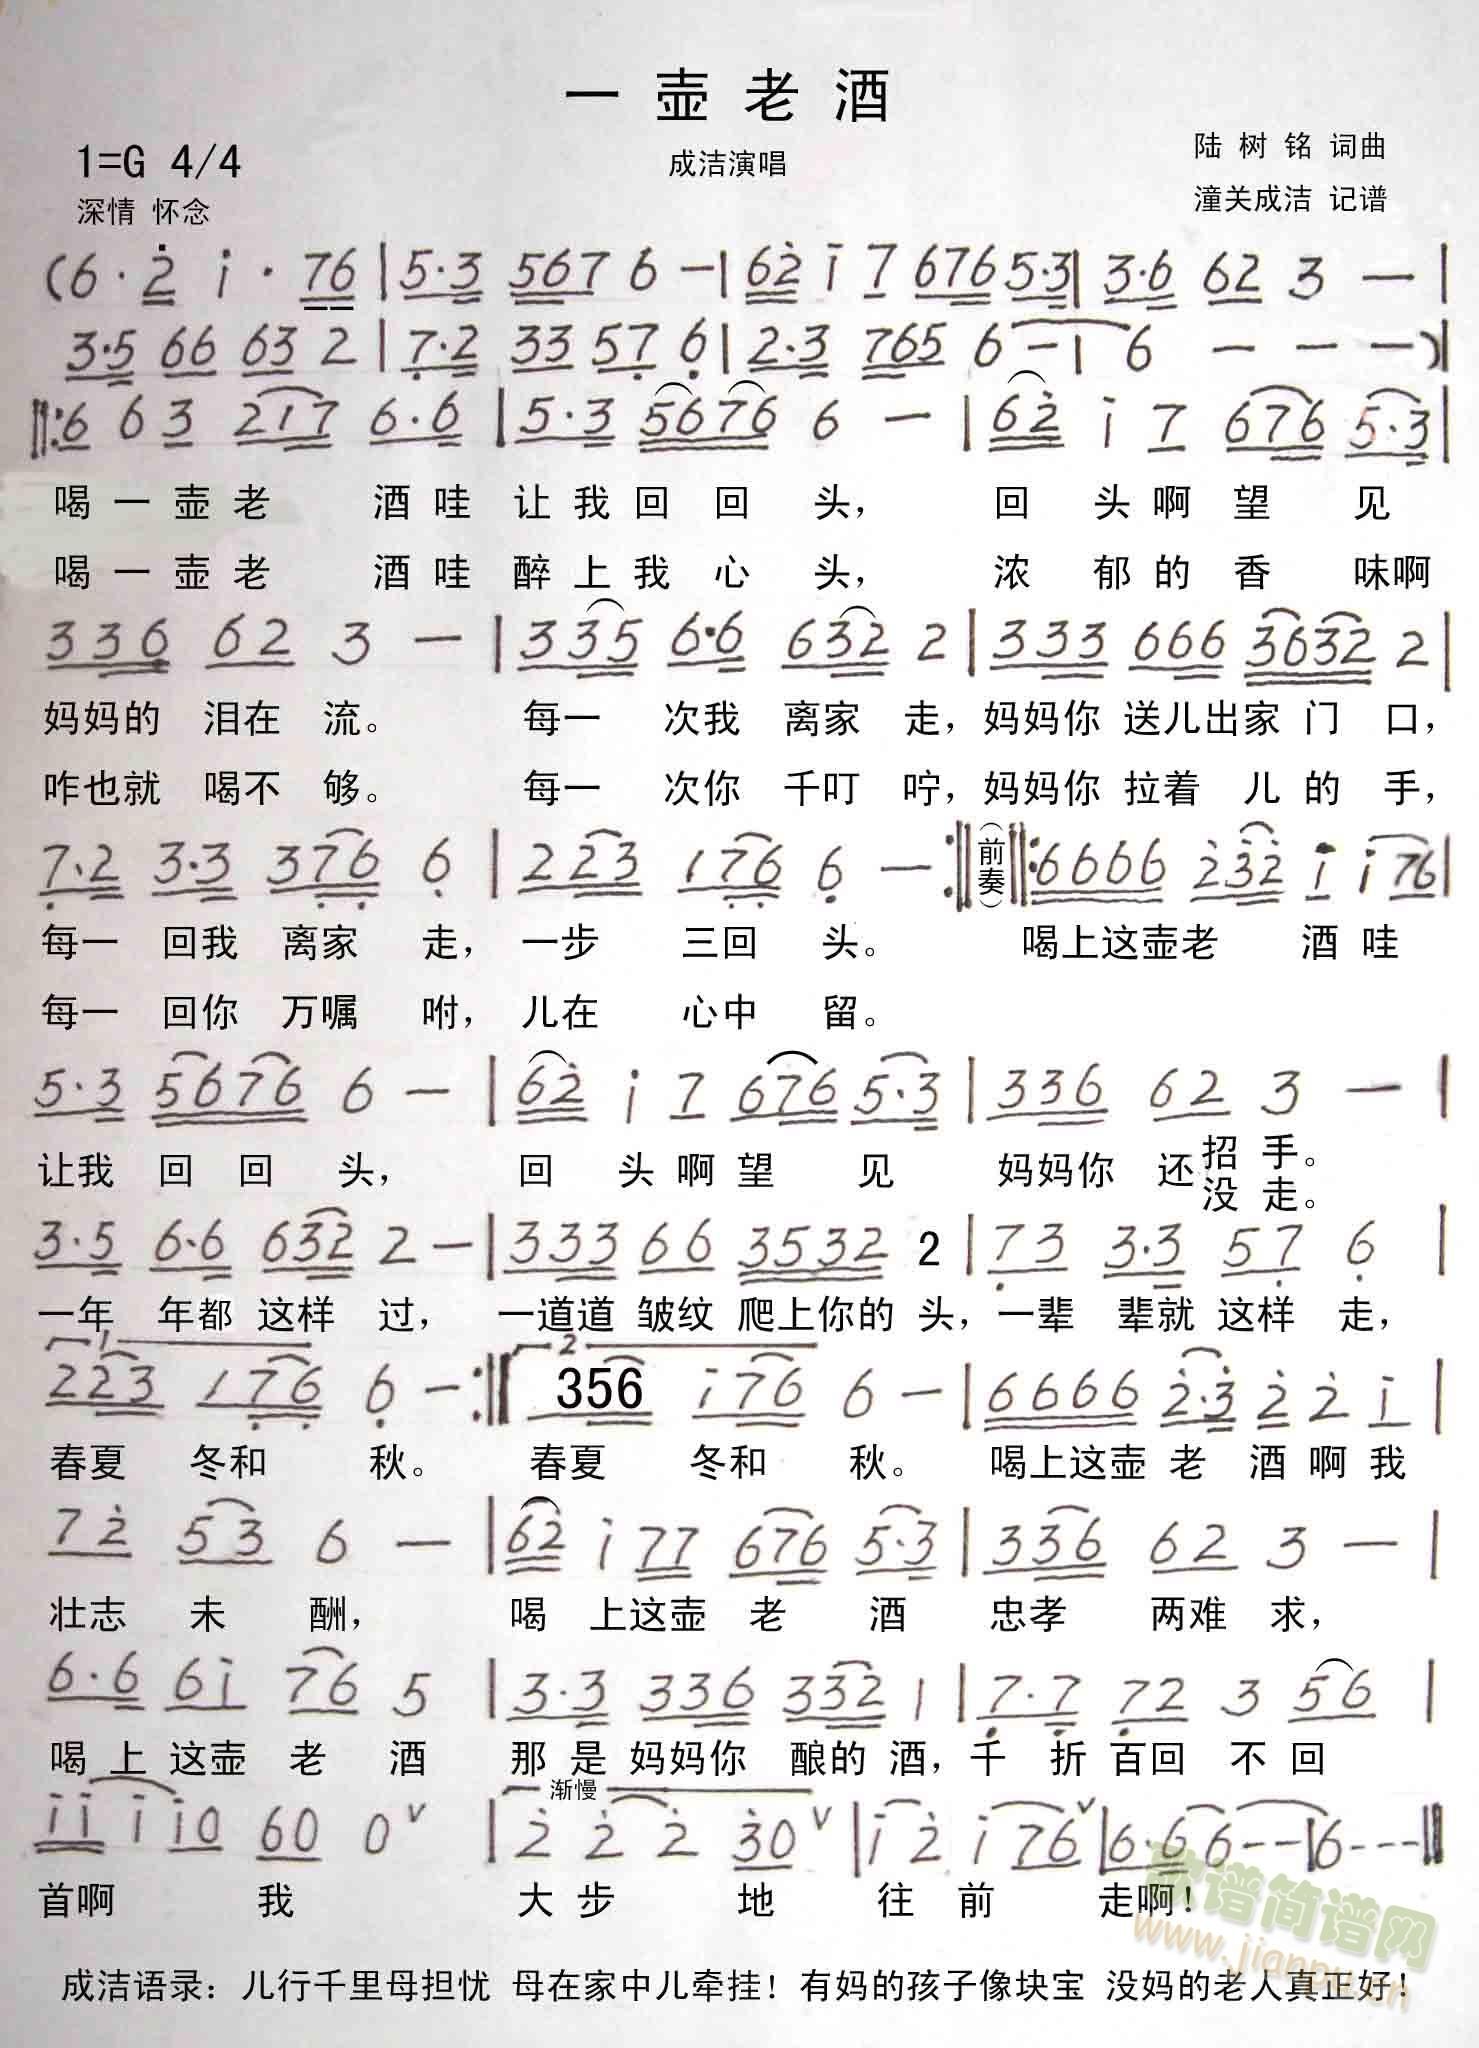 一 壶 老 酒
1=G 4/4
成洁演唱
陆 树 铭 词曲
深情 怀念
潼关成洁 记谱
(6·2̇ i̇·76 | 5·3 567 6 — | 62̇ i̇ 7 676 5·3 | 3·6 62 3 — |
3·5 66 63 2 | 7̣·2 33 57̣ 6̣ | 2·3 765 6 — | 6 — — —)|
‖:6 63 217 6·6 | 5·3 5676 6 — | 62̇ i̇ 7 676 5·3 |
喝 一 壶 老 酒 哇 让 我 回 回 头， 回 头 啊 望 见
喝 一 壶 老 酒 哇 醉 上 我 心 头， 浓 郁 的 香 味啊
336 62 3 — | 335 6·6 632 2 | 333 666 3632 2 |
妈妈的 泪在 流。 每一 次我 离家 走，妈妈你 送儿出家 门 口，
咋也就 喝不 够。 每一 次你 千叮 咛，妈妈你 拉着 儿 的 手，
7̣·2 3·3 37̣6̣ 6̣ | 223 17̣6̣ 6̣ — :‖(前奏)‖: 6666 2̇3̇2̇ i̇ i̇76 |
每一 回我 离家 走， 一步 三回 头。 喝上这壶老 酒 哇
每一 回你 万嘱 咐， 儿在 心中 留。
5·3 5676 6 — | 62̇ i̇ 7 676 5·3 | 336 62 3 — |
让我 回 回 头， 回 头 啊 望 见 妈妈你 还招 手。
没 走。
3·5 6·6 632 2 — | 333 66 3532 2 | 7̣3 3·3 57̣ 6̣ |
一年 年都 这样 过， 一道道 皱纹 爬上你的 头，一辈 辈就 这样 走，
1 2
223 17̣6̣ 6̣ — :‖ 356 i̇76 6 — | 6666 2̇·3̇ 2̇ 2̇ i̇ |
春夏 冬和 秋。 春夏 冬和 秋。 喝上这壶 老 酒 啊 我
72̇ 53 6 — | 62̇ i̇ 77 676 5·3 | 336 62 3 — |
壮志 未 酬， 喝 上这壶 老 酒 忠孝 两难 求，
6·6 6i̇ 76 5 | 3·3 336 332 1 | 7̣·7̣ 7̣2 3 56 |
喝 上 这壶 老 酒 那 是 妈妈你 酿的 酒，千 折 百回 不 回
渐慢
i̇i̇ i̇ i̇0 60 0 ∨ | 2̇ 2̇ 2̇ 3̇0 ∨ | i̇2̇ i̇76 ∨ | 6·6 6 — — | 6 — — — ‖
首啊 我 大 步 地 往 前 走啊！
歌谱简谱网
www.jianpu.cn
成洁语录：儿行千里母担忧 母在家中儿牵挂！有妈的孩子像块宝 没妈的老人真正好！